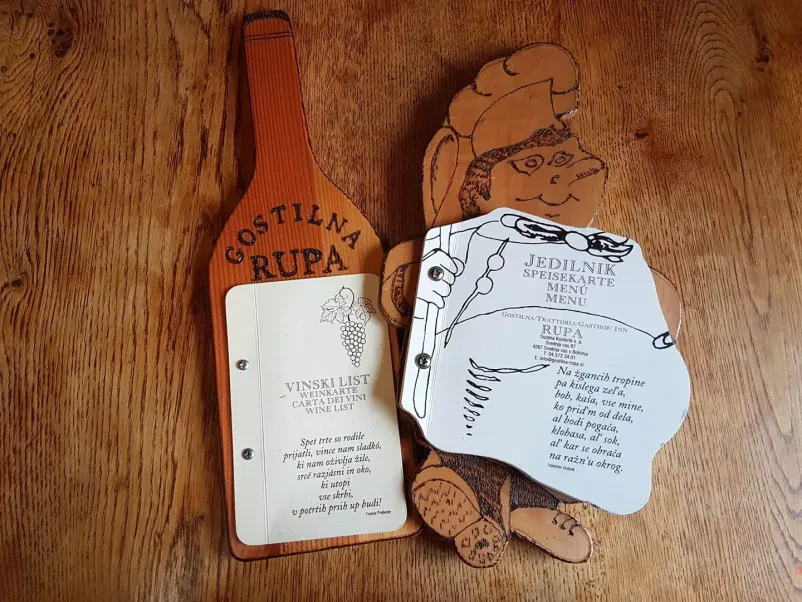 GOSTILNA
RUPA
VINSKI LIST
WEINKARTE
CARTA DEI VINI
WINE LIST
Spet trte so rodile
prijatli, vince nam sladkó,
ki nam oživlja žile,
srcé razjásni in oko,
ki utopi
vse skrbi,
v potrtih prsih up budi!
France Prešeren
JEDILNIK
SPEISEKARTE
MENÚ
MENU
GOSTILNA/TRATTORIA/GASTHOF/ INN
RUPA
Srednja vas 87
4267 Srednja vas v Bohinju
T: 04 572 34 01
E: info@gostilna-rupa.si
Na žgancih tropine
pa kislega zeľa,
bob, kaša, vse mine,
ko priď'm od dela,
al bodi pogača,
klobasa, aľ sok,
aľ kar se obrača
na ražn'u okrog.
Valentin Vodnik